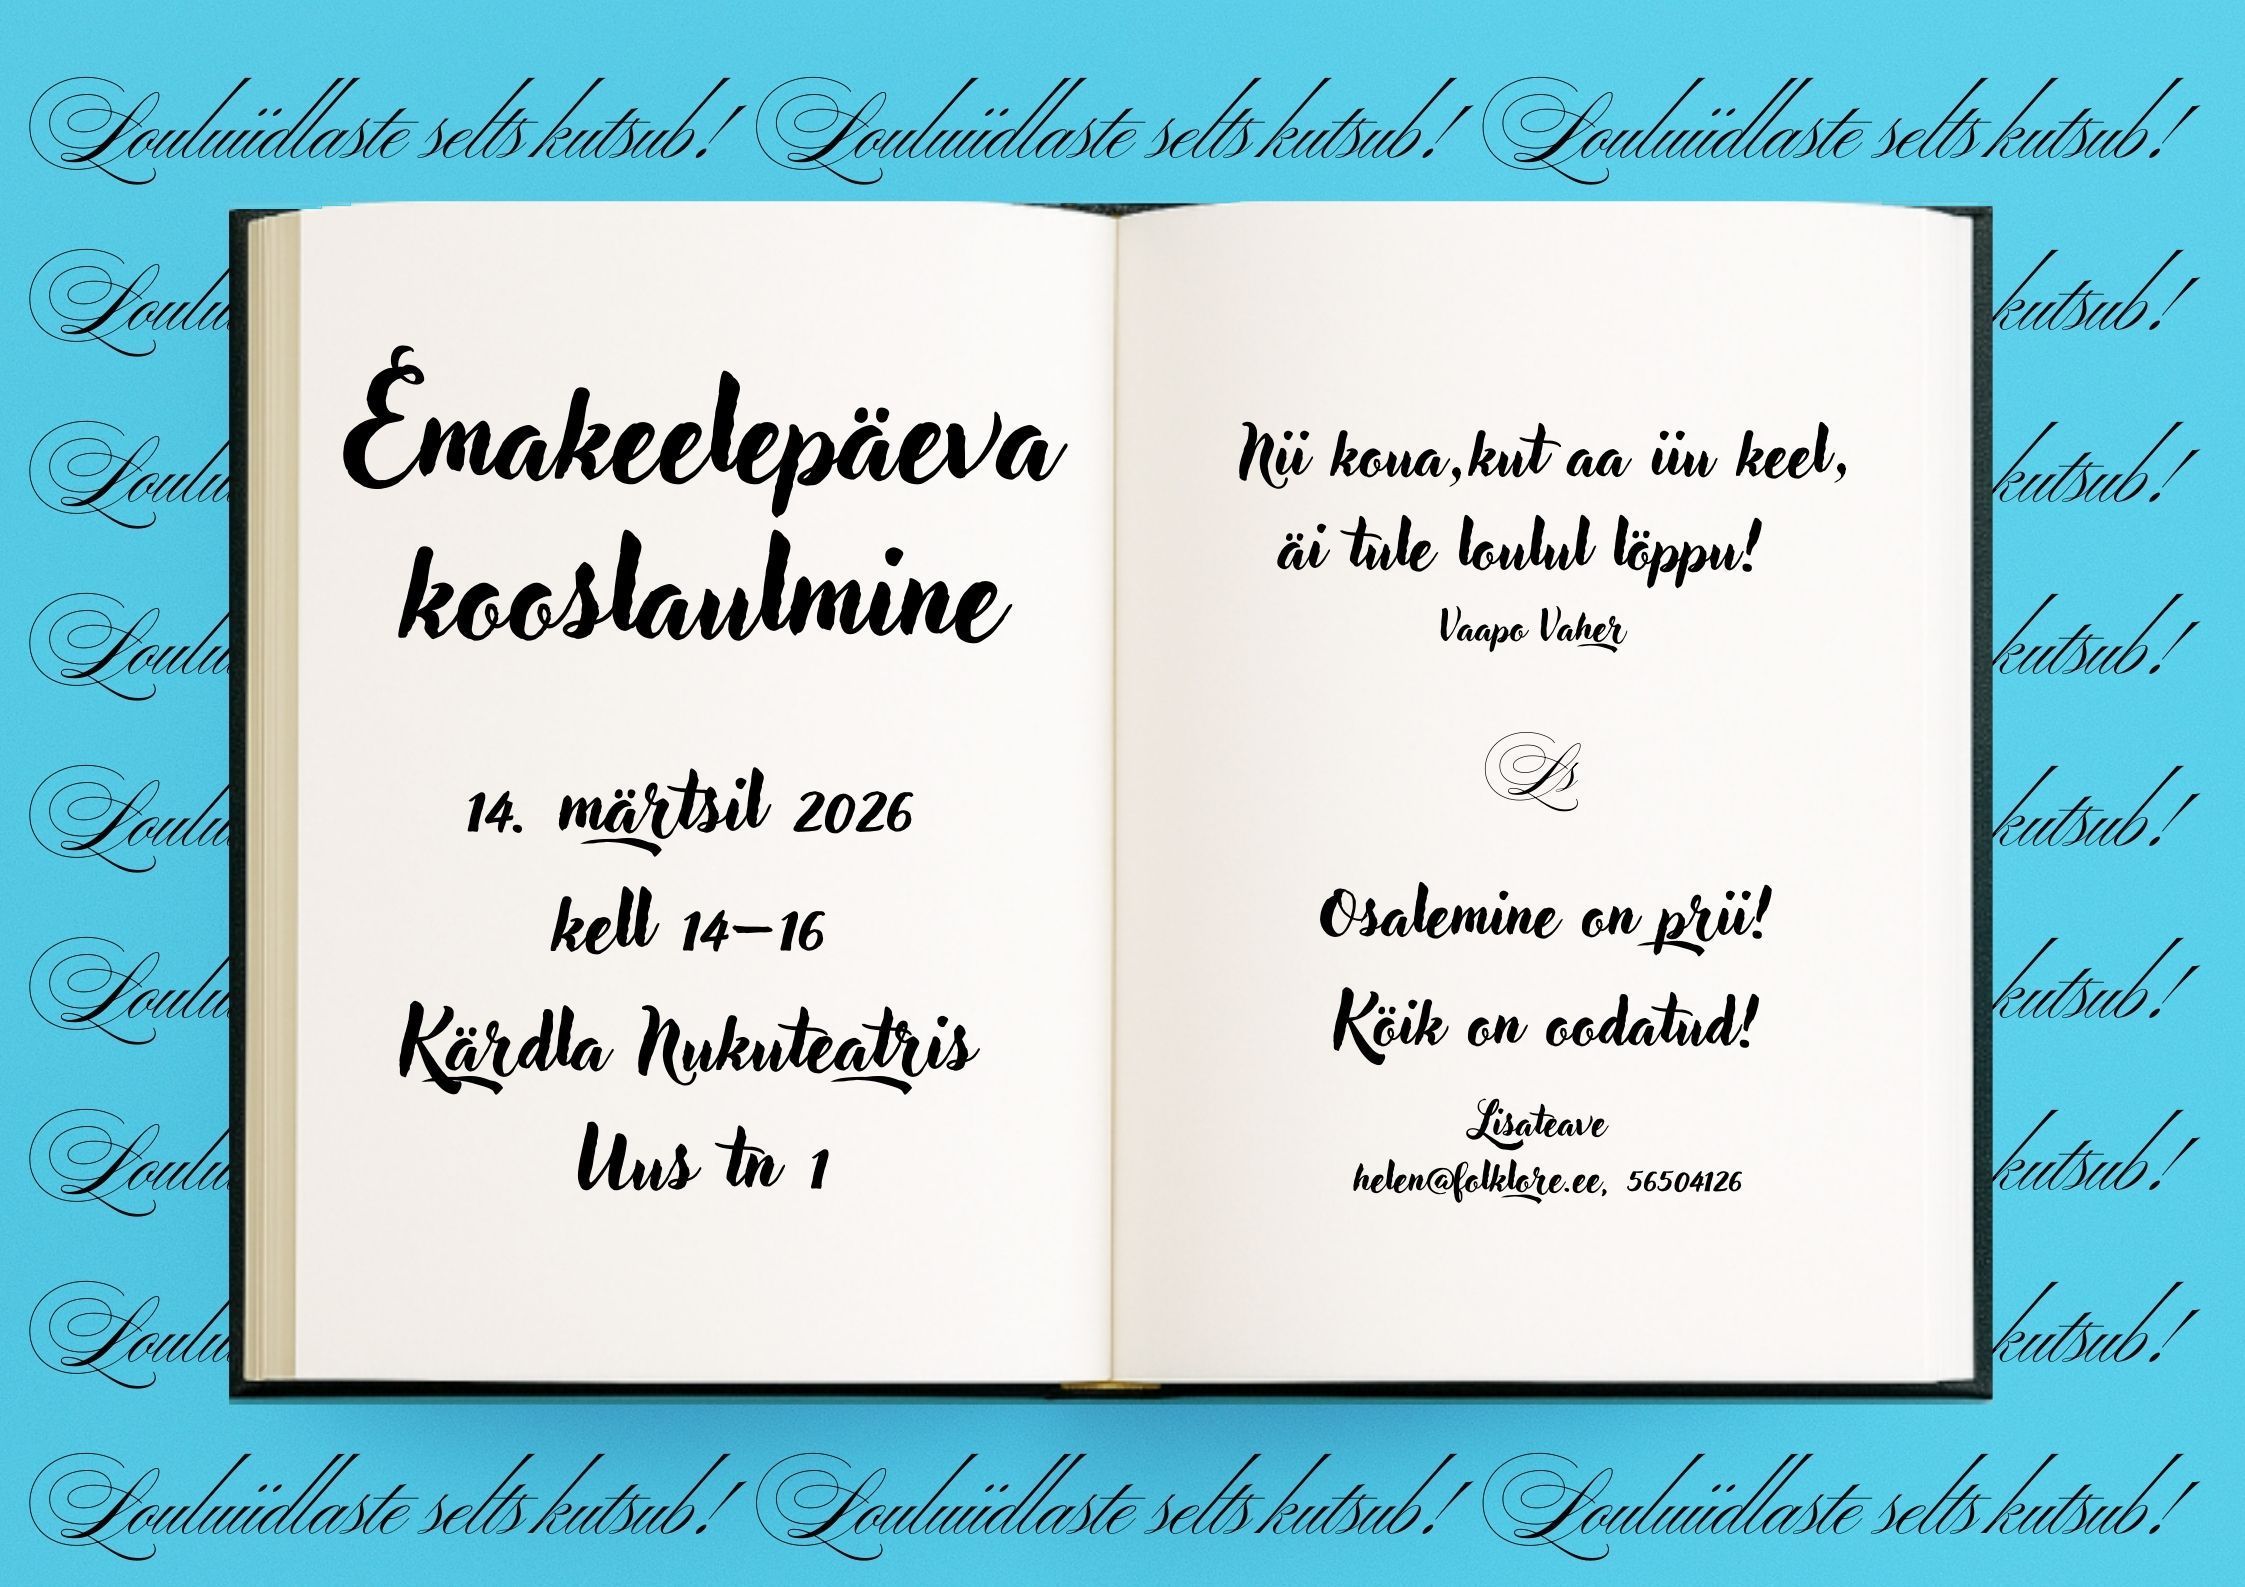 Louluiidlaste selts kutsub! Louluiidlaste selts kutsub! Louluiidlaste selts kutsub!
Loulu kutsub!
Loulu kutsub!
Loulu kutsub!
Loulu kutsub!
Loulu kutsub!
Loulu kutsub!
Loulu kutsub!
Emakeelepäeva
kooslaulmine
14. märtsil 2026
kell 14–16
Kärdla Nukuteatris
Uus tn 1
Nii koua,kut aa iiu keel,
äi tule loulul löppu!
Vaapo Vaher
Ls
Osalemine on prii!
Köik on oodatud!
Lisateave
helen@folklore.ee, 56504126
Louluiidlaste selts kutsub! Louluiidlaste selts kutsub! Louluiidlaste selts kutsub!